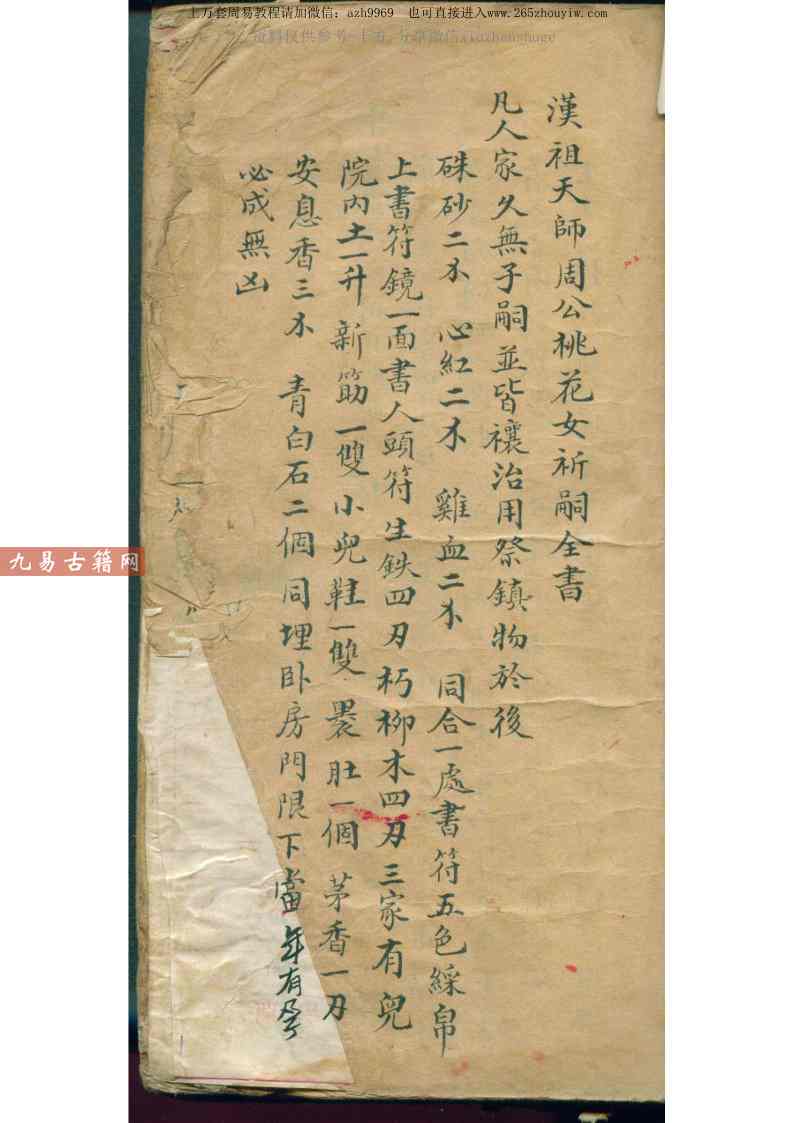 上万套周易教程请加微信：azh9969 也可直接进入www.265zhouyiw.com
漢祖天師周公桃花女祈嗣全書
凡人家久無子嗣並皆禳治用祭鎮物於後
硃砂二不 心紅二不 雞血二不 同合一處書符五色綵帛
上書符鏡一面書人頭符生鉄四刃朽柳木四刃三家有兒
院内土一升新筯一雙小兒鞋一雙 肚一個茅香一刃
安息香三不 青白石二個同埋卧房門限下當年有孕
必成無凶
九易古籍网